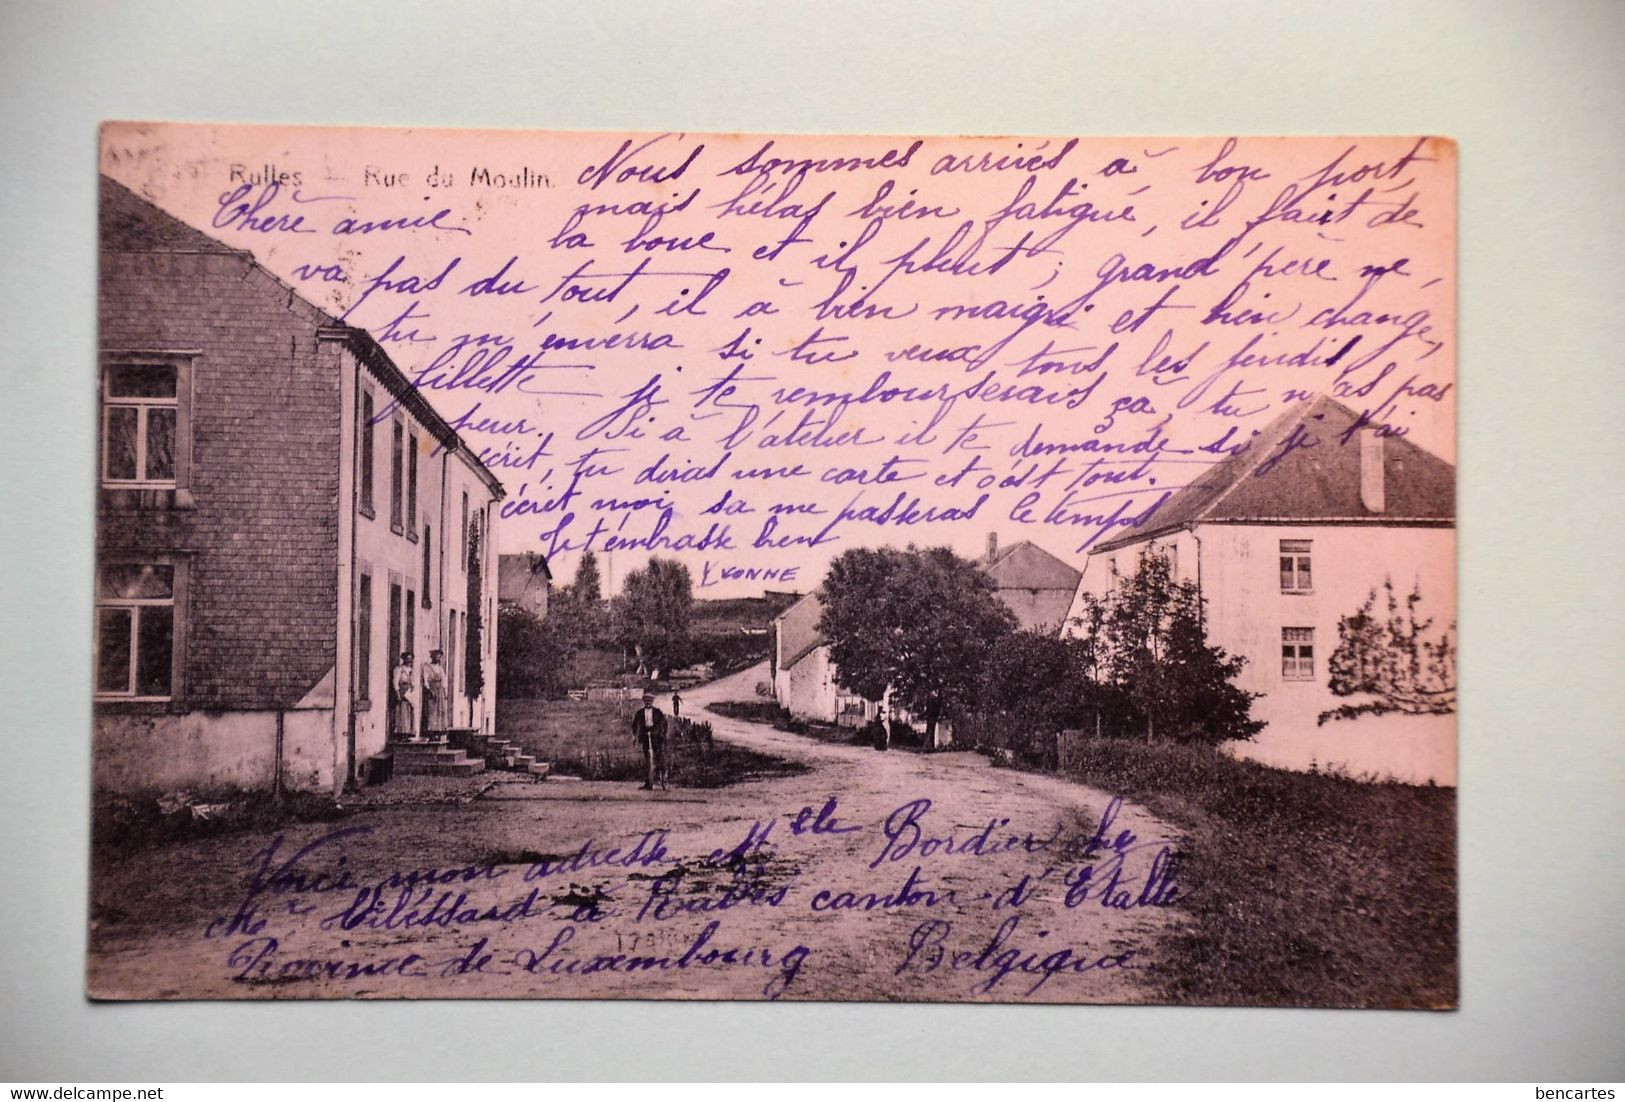 Rulles — Rue du Moulin.
Chère amie
Nous sommes arrivés à bon port,
mais hélas bien fatigué, il fait de
la boue et il pleut ; grand'père ne
va pas du tout, il à bien maigri et bien change,
tu m'enverra si tu veux tous les jeudis
fillette je te rembourserais ça, tu n'as pas
peur. Si à l'atelier il te demande si je t'ai
écrit, tu diras une carte et c'est tout.
écrit moi sa me passeras le temps
Je t'embrasse bien
YVONNE
Voici mon adresse Mlle Bordier chez
Mr à Rulles canton d'Etalle
Province de Luxembourg Belgique
bencartes